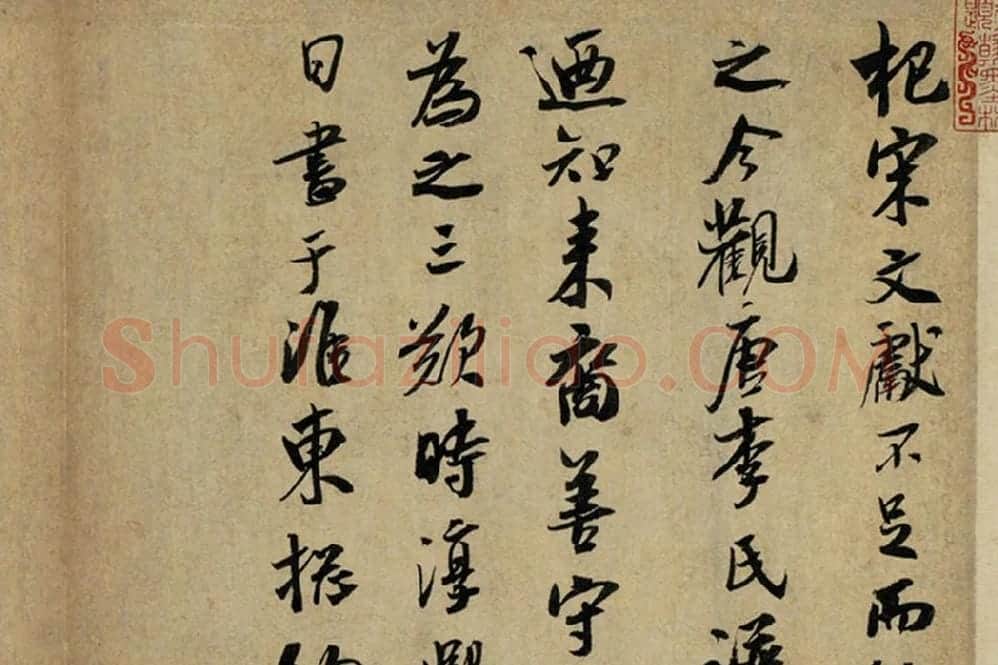 杞宋文獻不足而
之今觀唐李氏
迺知来裔善守
為之三歎時淳熙
日書于淮東
ShufaZiDo.COM